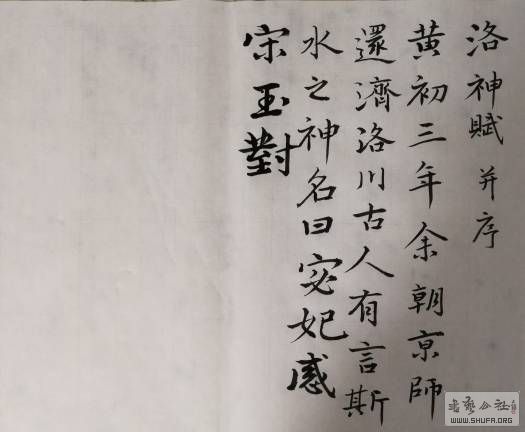 洛神賦并序
黄初三年余朝京師
還濟洛川古人有言斯
水之神名曰宓妃感
宋玉對
WWW.SHUFA.ORG